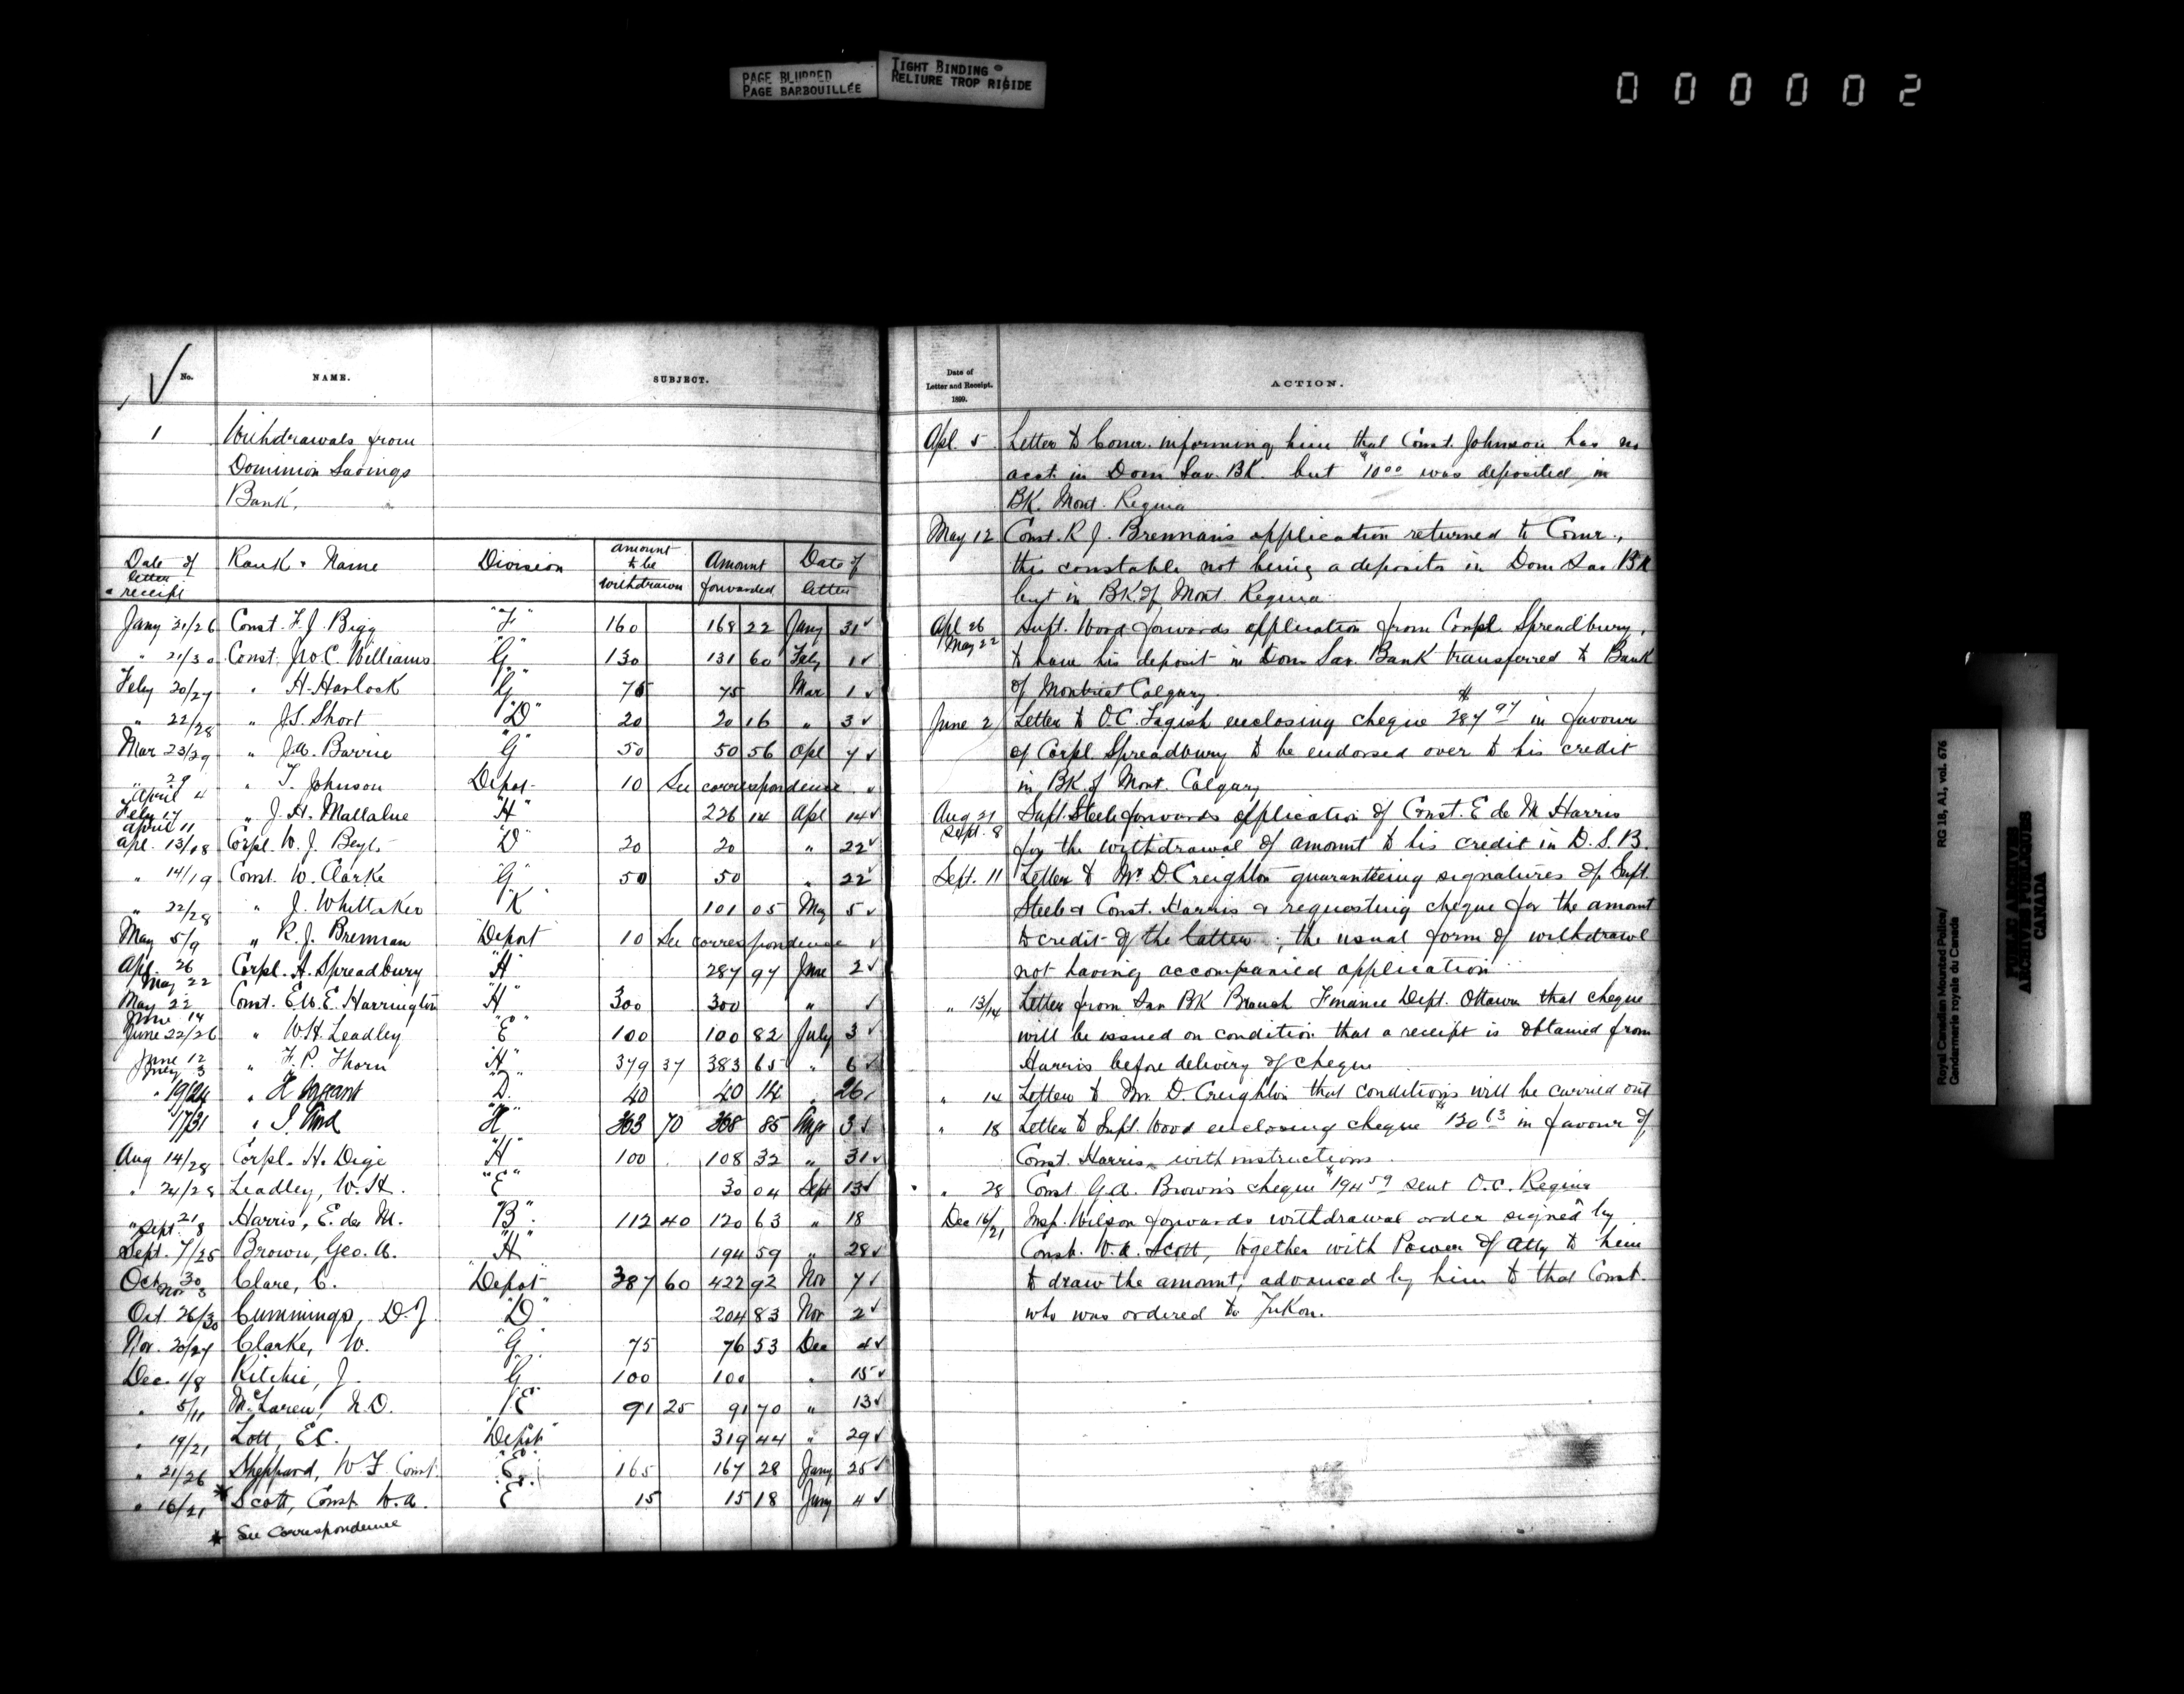 PAGE BLURRED
PAGE BARBOUILLÉE
TIGHT BINDING
RELIURE TROP RIGIDE
000002
No. NAME. SUBJECT.
1 Withdrawals from
Dominion Savings
Bank.
Date of letter & receipt Rank & Name Division amount to be withdrawn Amount forwarded Date of letter
Jany 21/26 Const. F. J. Bigg "F" 160 168 22 Jany 31 ✓
" 21/30 Const. Jno. C. Williams "G" 130 131 60 Feby 1 ✓
Feby 20/27 " H. Havlock "G" 75 75 Mar 1 ✓
" 22/28 " J.S. Short "D" 20 20 16 " 3 ✓
Mar 23/29 " J.A. Barrie "G" 50 50 56 Apl 7 ✓
" 29 April 4 " T. Johnson Depot 10 See correspondence ✓
Feby 17 April 11 " J. H. Mallalue "H" 226 14 Apl 14 ✓
Apl. 13/18 Corpl. W. J. "D" 20 20 " 22 ✓
" 14/19 Const. W. Clarke "G" 50 50 " 22 ✓
" 22/28 " J. Whittaker "K" 101 05 May 5 ✓
May 5/9 " R. J. Brennan "Depot" 10 See correspondence ✓
Apl. 26 May 22 Corpl. H. Spreadbury "H" 287 97 June 2 ✓
May 22 June 14 Const. E.W.E. Harrington "H" 300 300 " ✓
June 22/26 " W.H. Leadley "E" 100 100 82 July 3 ✓
June 12 July 3 " F. P. Thorn "H" 379 37 383 65 " 6 ✓
" 19/24 " H "D" 40 40 14 " 26 ✓
17/31 " "H" 363 70 368 85 Aug 3 ✓
Aug 14/28 Corpl. H. Dige "H" 100 108 32 " 31 ✓
" 24/28 Leadley, W. H. "E" 30 04 Sept 13 ✓
" 21 Sept. 8 Harris, E. de M. "B" 112 40 120 63 " 18
Sept. 7/25 Brown, Geo. A. "H" 194 59 " 28 ✓
Oct 30 Nov 3 Clare, C. "Depot" 387 60 422 92 Nov 7 ✓
Oct 26/30 Cummings, D. J. "D" 204 83 Nov 2 ✓
Nov. 20/27 Clarke, W. "G" 75 76 53 Dec 4 ✓
Dec. 1/8 Ritchie, J. G 100 100 " 15 ✓
" 5/11 McLaren, N.D. "E" 91 25 91 70 " 13 ✓
" 19/21 Lott, E.C. "Depot" 319 44 " 29 ✓
" 21/26 Sheppard, W F Const. "E" 165 167 28 Jany 25 ✓
" 16/21 * Scott, Const. W.A. E 15 15 18 Jany 4 ✓
* See Correspondence
Date of Letter and Receipt. 1899. ACTION.
Apl. 5 Letter to Comr. informing him that Const. Johnson has no
acct. in Dom Sav. BK. but $10 00 was deposited in
BK. Mont. Regina
May 12 Const. R. J. Brennan's application returned to Comr.,
this constable not being a depositor in Dom Sav BK
but in BK of Mont. Regina
Apl 26 May 22 Supt. Wood forwards application from Corpl. Spreadbury,
to have his deposit in Dom Sav. Bank transferred to Bank
of Montreal Calgary
June 2 Letter to O.C. Tagish enclosing cheque $287 97 in favour
of Corpl. Spreadbury to be endorsed over to his credit
in BK of Mont. Calgary
Aug 21 Sept. 8 Supt. Steele forwards application of Const. E de M Harris
for the withdrawal of amount to his credit in D. S. B.
Sept. 11 Letter to Mr. D. Creighton guaranteeing signatures of Supt.
Steele & Const. Harris & requesting cheque for the amount
to credit of the latter; the usual form of withdrawl
not having accompanied application
" 13/14 Letter from Sav BK Branch Finance Dept. Ottawa that cheque
will be issued on condition that a receipt is obtained from
Harris before delivery of cheque
" 14 Letter to Mr. D. Creighton that conditions will be carried out
" 18 Letter to Supt. Wood enclosing cheque $120 63 in favour of
Const. Harris, with instructions
" 28 Const G.A. Brown's cheque $194 59 sent O.C. Regina
Dec 16/21 Insp. Wilson forwards withdrawal order signed by
Const. W.A. Scott, together with Power of Atty to him
to draw the amount, advanced by him to that Const.
who was ordered to Yukon.
Royal Canadian Mounted Police/
Gendarmerie royale du Canada
RG 18, A1, vol. 676
PUBLIC ARCHIVES
ARCHIVES PUBLIQUES
CANADA